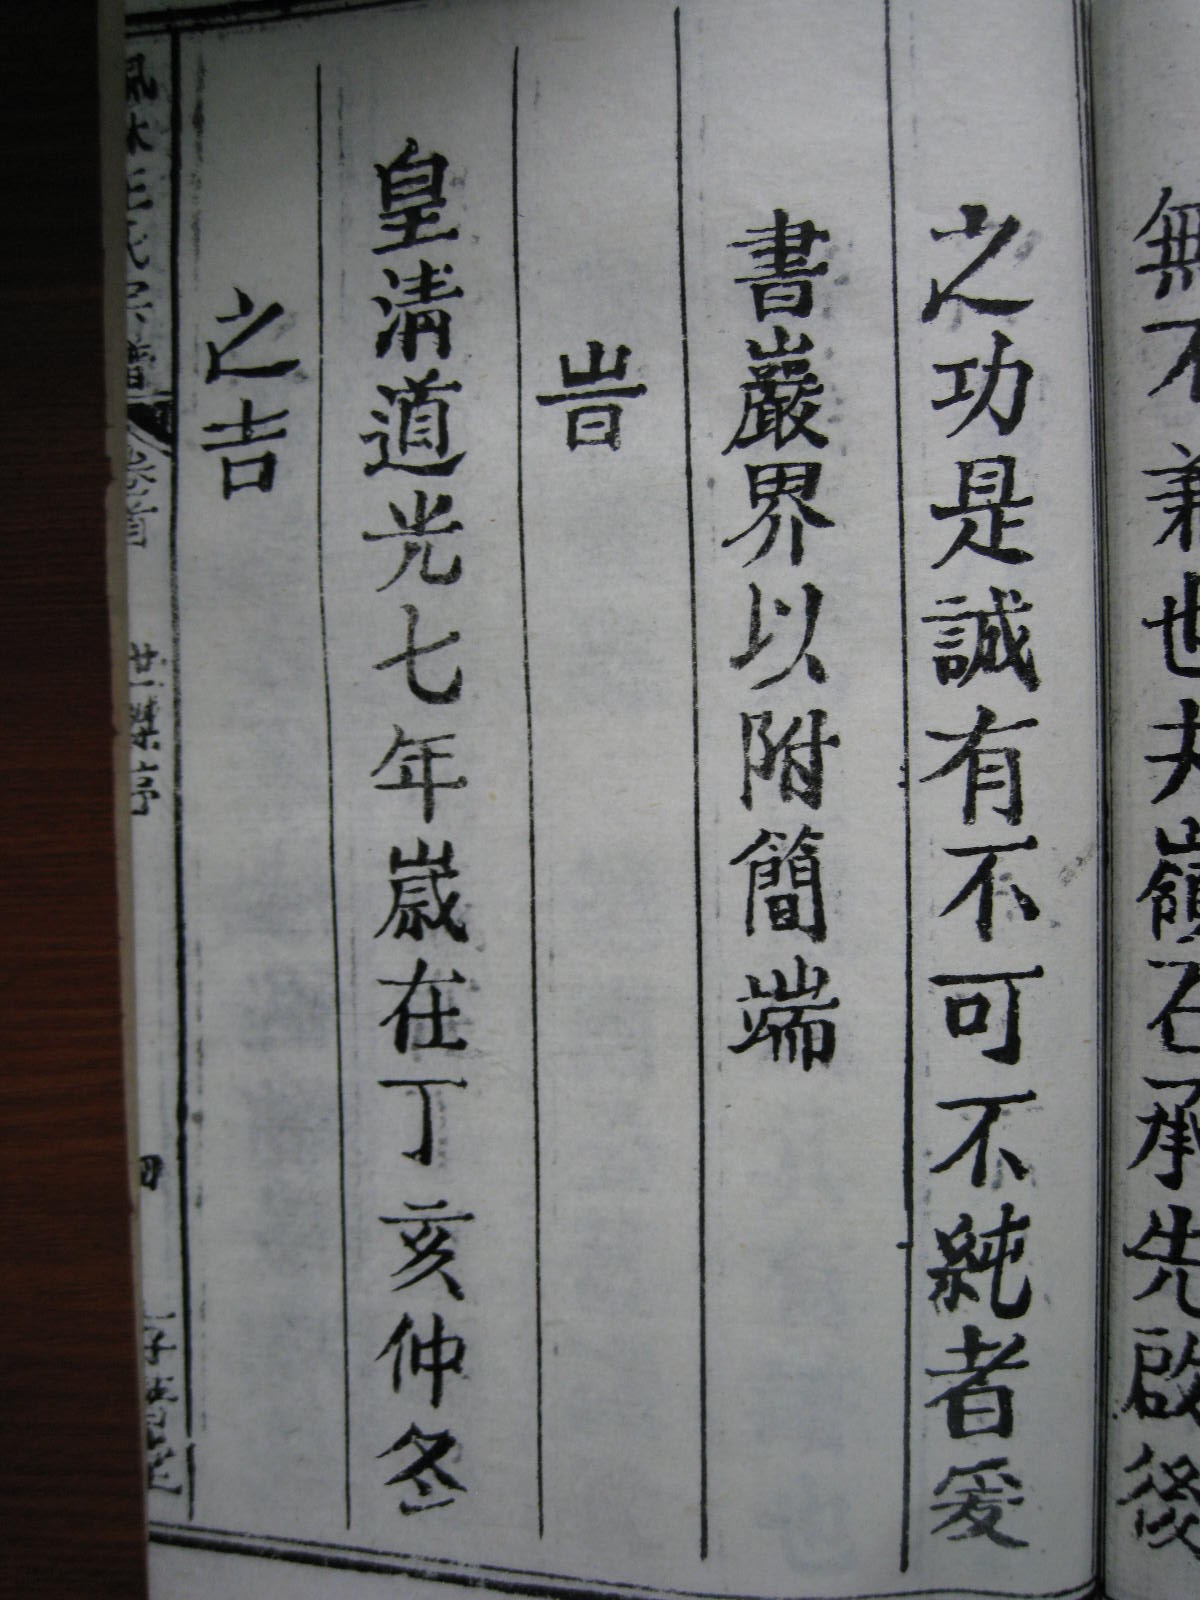 無不兼也夫嶺石承先啟後
之功是誠有不可不純者爰
書嚴界以附簡端
旹
皇清道光七年嵗在丁亥仲冬
之吉
王氏宗譜 卷首 四